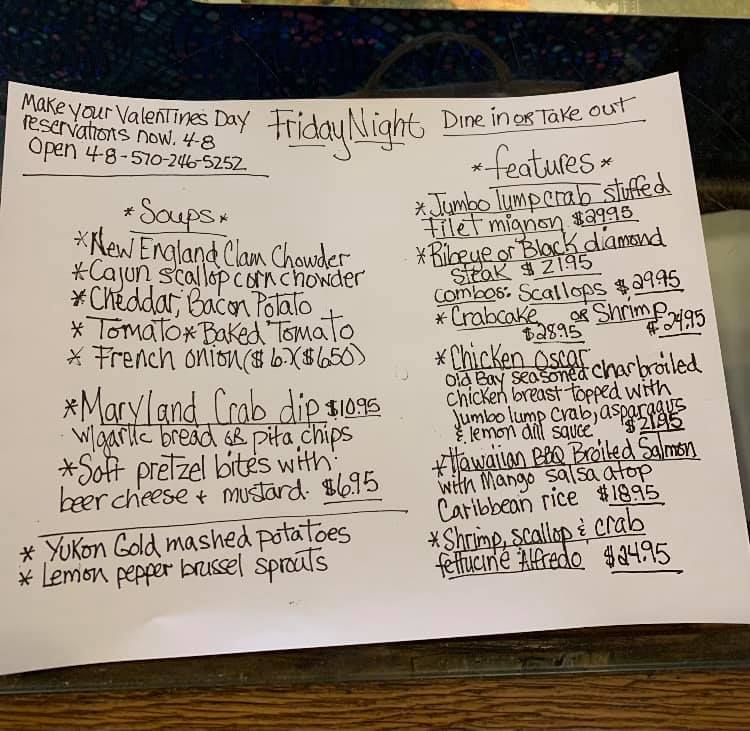 Make your Valentines Day
reservations now. 4-8
Open 4-8-570-246-5252
Friday Night
Dine in or Take out
*Soups*
*New England Clam Chowder
*Cajun scallop corn chowder
*Cheddar, Bacon Potato
* Tomato*Baked Tomato
* French onion($6.)($6.50)
*Maryland Crab dip $10.95
w/garlic bread or pita chips
*Soft pretzel bites with:
beer cheese + mustard. $6.95
* Yukon Gold mashed potatoes
* Lemon pepper brussel sprouts
*features*
*Jumbo lump crab stuffed
filet mignon $29.95
*Ribeye or Black diamond
steak $21.95
combos: Scallops $29.95
* Crabcake or Shrimp
$28.95 $24.95
*Chicken Oscar
Old Bay seasoned charbroiled
chicken breast topped with
Jumbo lump crab, asparagus
& lemon dill sauce $21.95
*Hawaiian BBQ Broiled Salmon
with Mango salsa atop
Caribbean rice $18.95
*Shrimp, scallop & crab
fettucine Alfredo $24.95